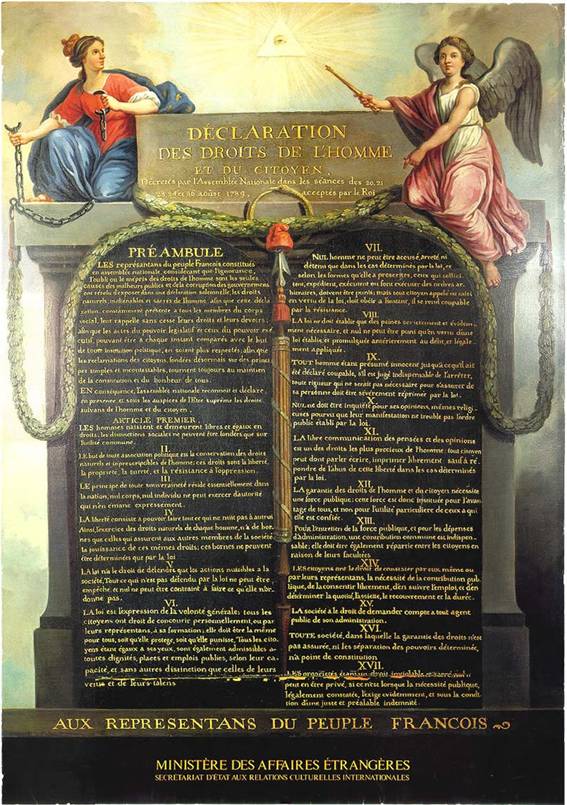 DÉCLARATION
DES DROITS DE L'HOMME
ET DU CITOYEN,
Décretés par l'Assemblée Nationale dans les séances des 20, 21
23, 24 et 26 août 1789, acceptés par le Roi
PRÉAMBULE
LES représentans du peuple François constitués
en assemblée nationale, considérant que l'ignorance,
l'oubli ou le mépris des droits de l'homme sont les seules
causes des malheurs publics et de la corruption des gouvernemens
ont résolu d'exposer dans une déclaration solemnelle, les droits
naturels, inaliénables et sacrés de l'homme; afin que cette décla
ration, constamment présente à tous les membres du corps
social, leur rappelle sans cesse leurs droits et leurs devoirs;
afin que les actes du pouvoir législatif et ceux du pouvoir exé
cutif, pouvant être à chaque instant comparés avec le but
de toute institution politique, en soient plus respectés; afin que
les réclamations des citoyens, fondées désormais sur des principes
simples et incontestables, tournent toujours au maintien
de la constitution et du bonheur de tous.
EN conséquence, l'assemblée nationale reconnoit et déclare,
en présence et sous les auspices de l'Être suprême les droits
suivans de l'homme et du citoyen.
ARTICLE PREMIER.
LES hommes naissent et demeurent libres et égaux en
droits; les distinctions sociales ne peuvent être fondées que sur
l'utilité commune.
II.
LE but de toute association politique est la conservation des droits
naturels et imprescriptibles de l'homme; ces droits sont la liberté,
la propriété, la sureté, et la résistance à l'oppression.
III
LE principe de toute souveraineté réside essentiellement dans
la nation, nul corps, nul individu ne peut exercer d'autorité
qui n'en émane expressément.
IV
LA liberté consiste à pouvoir faire tout ce qui ne nuit pas à autrui
Ainsi, l'exercice des droits naturels de chaque homme, n'a de bor
nes que celles qui assurent aux autres membres de la société
la jouissance de ces mêmes droits; ces bornes ne peuvent
être déterminées que par la loi
V.
LA loi n'a le droit de défendre que les actions nuisibles à la
société. Tout ce qui n'est pas défendu par la loi ne peut être
empêché, et nul ne peut être contraint à faire ce qu'elle n'or
donne pas.
VI.
LA loi est l'expression de la volonté générale; tous les
citoyens ont droit de concourir personnellement, ou par
leurs représentans, à sa formation; elle doit être la même
pour tous, soit qu'elle protege, soit qu'elle punisse. Tous les cito
yens étant égaux à ses yeux, sont également admissibles à
toutes dignités, places et emplois publics, selon leur ca
pacité, et sans autres distinction que celles de leurs
vertus et de leurs talens
VII.
NUL homme ne peut être accusé, arreté, ni
détenu que dans les cas déterminés par la loi, et
selon les formes qu'elle a prescrites, ceux qui sollici
tent, expédient, exécutent ou font exécuter des ordres ar
bitraires, doivent être punis; mais tout citoyen appelé ou saisi
en vertu de la loi, doit obéir à l'instant, il se rend coupable
par la résistance.
VIII.
LA loi ne doit établir que des peines strictement et évidem
ment nécessaire, et nul ne peut être puni qu'en vertu d'une
loi établie et promulguée antérieurement au délit, et légale
ment appliquée.
IX.
TOUT homme étant présumé innocent jusqu'à ce qu'il ait
été déclaré coupable, s'il est jugé indispensable de l'arrêter,
toute rigueur qui ne serait pas nécessaire pour s'assurer de
sa personne doit être sévèrement réprimée par la loi.
X
NUL ne doit être inquiété pour ses opinions, mêmes religi
euses pourvu que leur manifestation ne trouble pas l'ordre
public établi par la loi.
XI.
LA libre communication des pensées et des opinions
est un des droits les plus précieux de l'homme; tout citoyen
peut donc parler, écrire, imprimer librement: sauf à ré
pondre de l'abus de cette liberté dans les cas déterminés
par la loi.
XII.
LA garantie des droits de l'homme et du citoyen nécessite
une force publique: cette force est donc instituée pour l'avan
tage de tous, et non pour l'utilité particulière de ceux à qui
elle est confiée.
XIII.
Pour l'entretien de la force publique, et pour les dépenses
d'administration, une contribution commune est indispen
sable; elle doit être également répartie entre les citoyens en
raison de leurs facultées
XIV.
LES citoyens ont le droit de constater par eux même ou
par leurs représentans, la nécessité de la contribution pub
lique, de la consentir librement, d'en suivre l'emploi, et d'en
déterminer la quotité, l'assiette, le recouvrement et la durée.
XV.
LA société a le droit de demander compte à tout agent
public de son administration.
XVI.
TOUTE société, dans laquelle la garantie des droits n'est
pas assurée, ni les séparation des pouvoirs déterminée,
n'a point de constitution
XVII.
LES propriétés étant un droit inviolable et sacré, nul ne
peut en être privé, si ce n'est lorsque la nécessité publique,
légalement constatée, l'exige évidemment, et sous la condi
tion d'une juste et préalable indemnité.
AUX REPRESENTANS DU PEUPLE FRANCOIS
MINISTÈRE DES AFFAIRES ÉTRANGÈRES
SECRÉTARIAT D'ÉTAT AUX RELATIONS CULTURELLES INTERNATIONALES